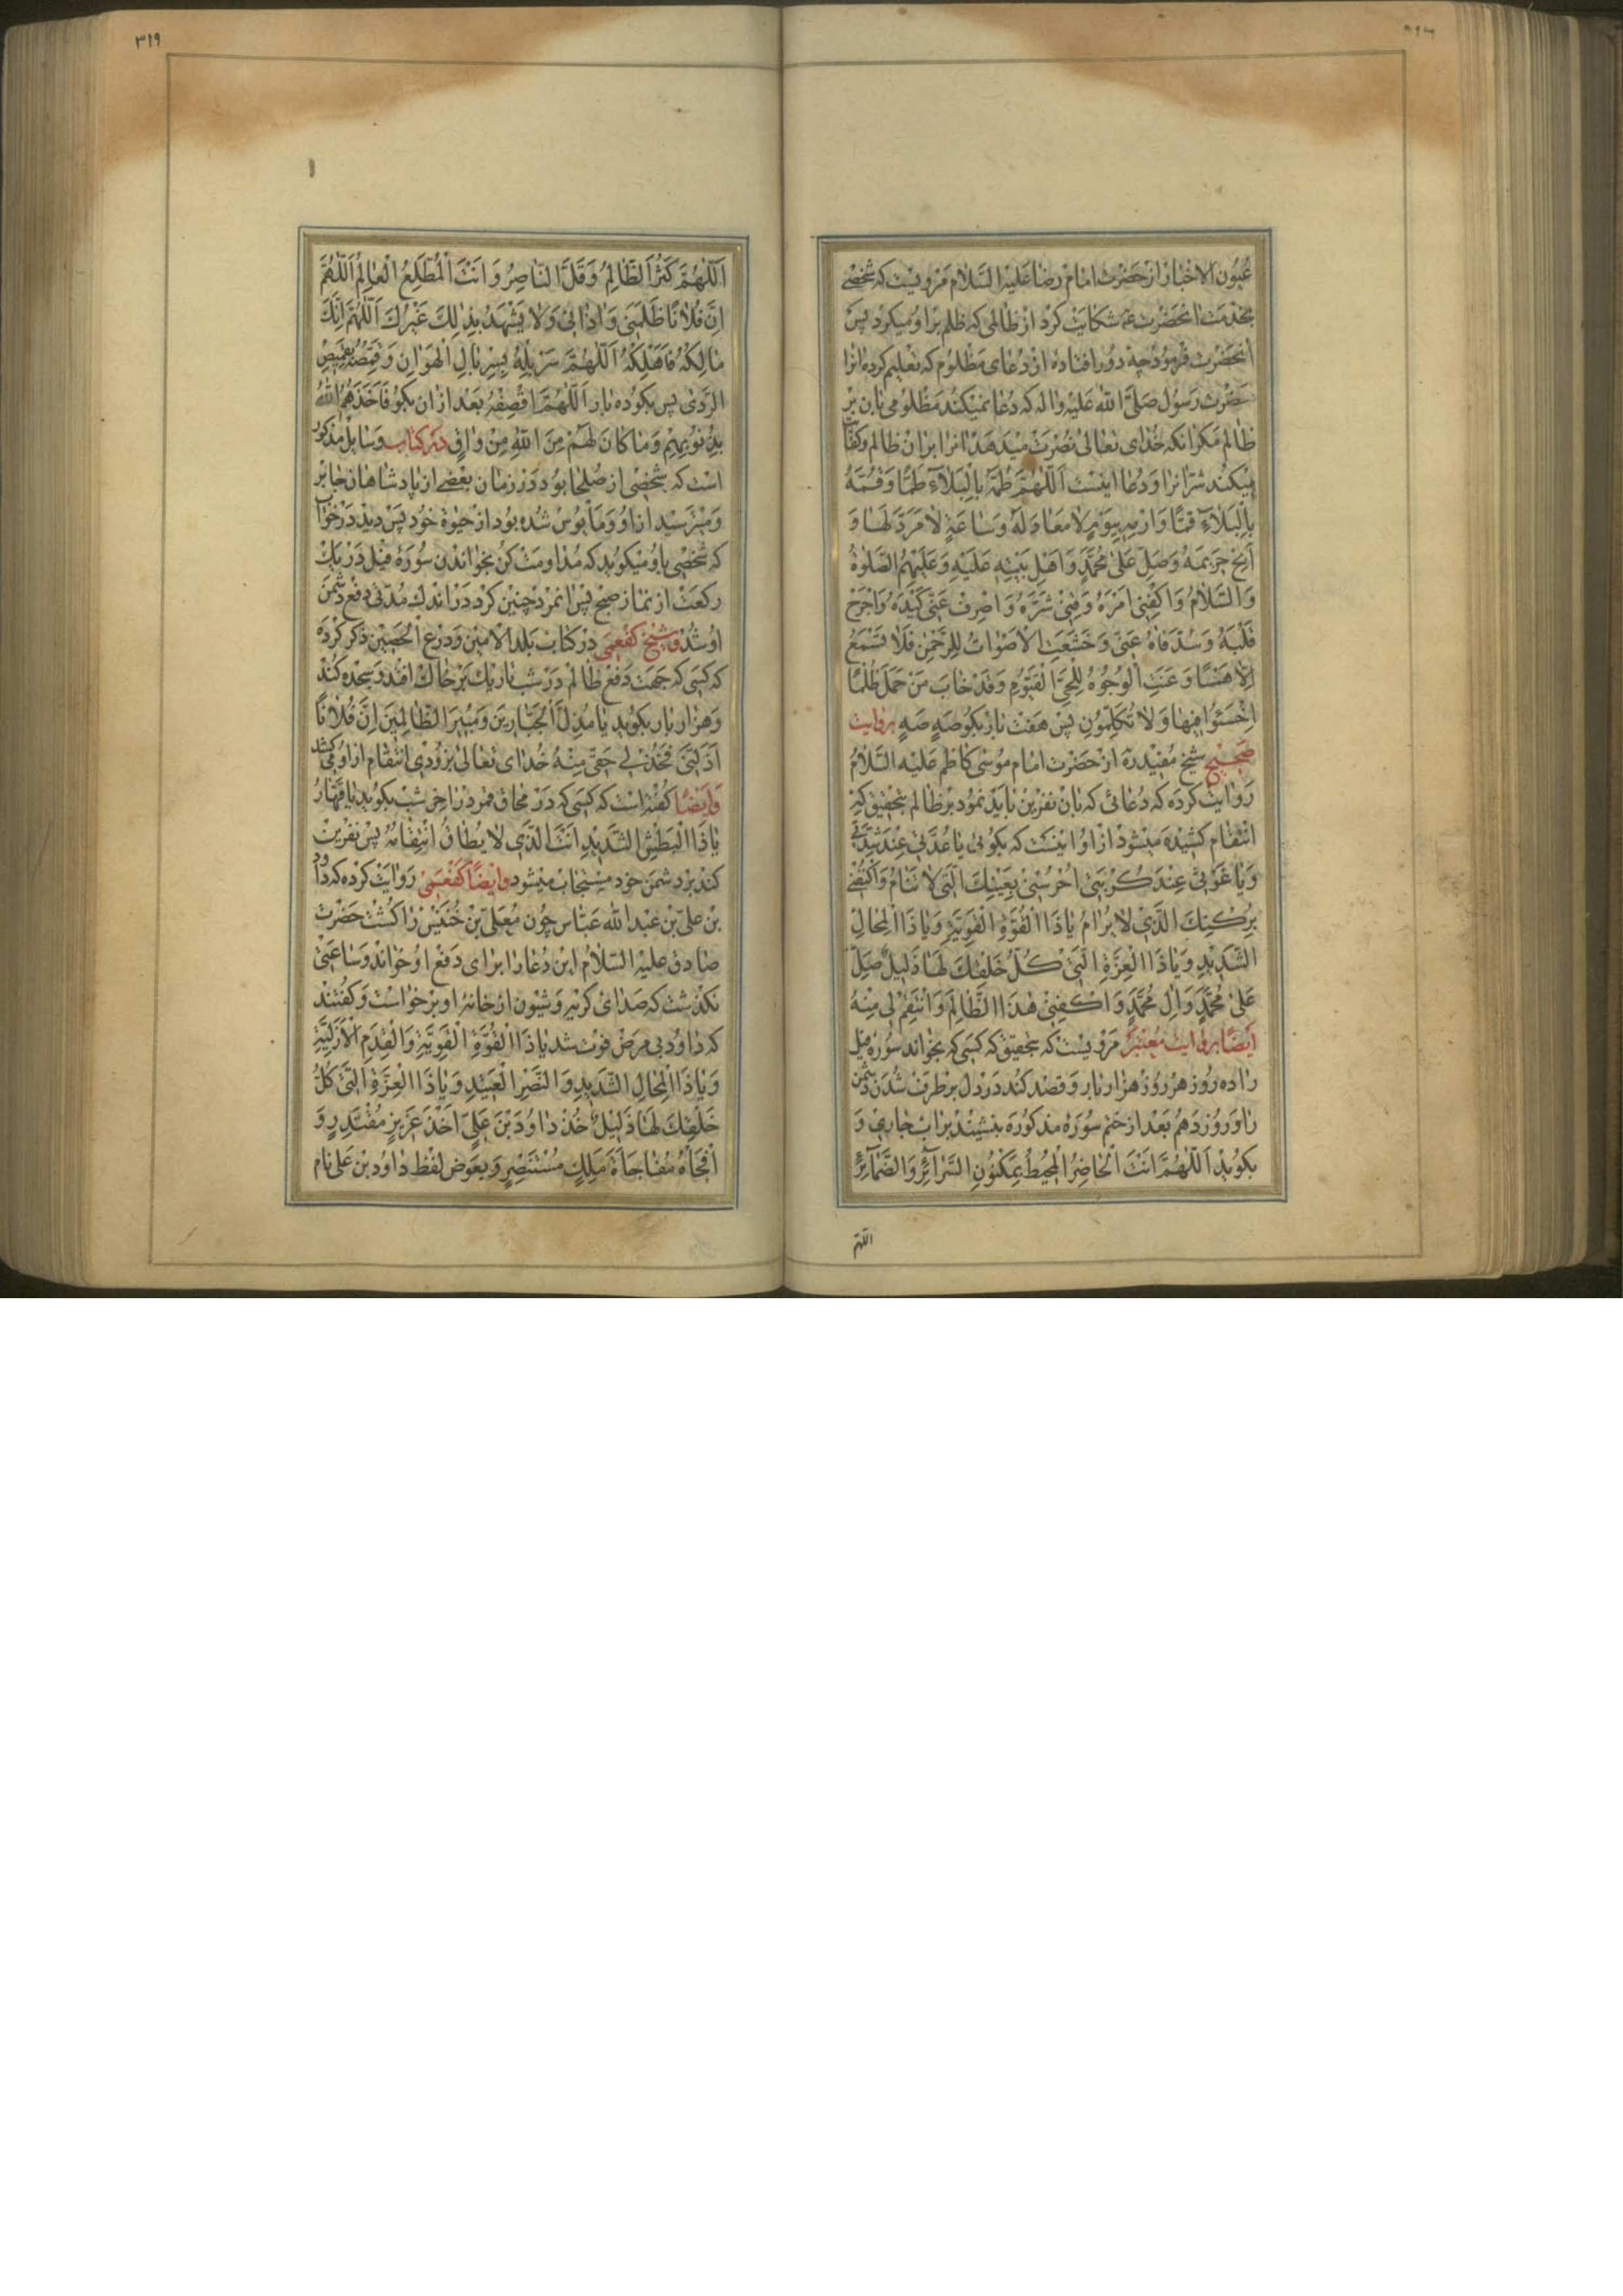 عیون الاخبار از حضرت امام رضا علیه السلام مرویست که شخصی
بخدمت انحضرت ع شکایت کرد از ظالمی که ظلم براو میکرد پس
انحضرت فرمود چه دور افتاده از دعای مظلوم که تعلیم کرده انرا
حضرت رسول صلی الله علیه واله که دعا نمیکند مظلومی باین بر
ظالم مکر انکه خدای تعالی نصرت میدهد انرا بران ظالم و کفایت
میکند شر انرا و دعا اینست اَللّهُمَّ طُمَّهُ بِالْبَلاءِ طَمًّا وَقُمَّهُ
بِالْبَلاءِ قَمًّا وَارْمِهِ بِيَوْمٍ لا مَعادَ لَهُ وَساعَةٍ لا مَرَدَّ لَها وَ
اَبِحْ حَرِيمَهُ وَصَلِّ عَلى مُحَمَّدٍ وَاَهْلِ بَيْتِهِ عَلَيْهِ وَعَلَيْهِمُ الصَّلوةُ
وَالسَّلامُ وَاكْفِنِي اَمْرَهُ وَقِنِي شَرَّهُ وَاصْرِفْ عَنِّي كَيْدَهُ وَاجْرَحْ
قَلْبَهُ وَسُدَّ فاهُ عَنِّي وَخَشَعَتِ الْاَصْواتُ لِلرَّحْمنِ فَلا تَسْمَعُ
اِلّا هَمْسًا وَعَنَتِ الْوُجُوهُ لِلْحَيِّ الْقَيُّومِ وَقَدْ خابَ مَنْ حَمَلَ ظُلْمًا
اِخْسَئُوا فِيها وَلا تُكَلِّمُونِ پس هفت بار بکو صَهٍ صَهٍ بروایت
صحیح شیخ مفید ره از حضرت امام موسی کاظم علیه السلام
روایت کرده که دعائی که بان نفرین باید نمود بر ظالم بتحقیق که
انتقام کشیده میشود از او اینست که بکوئی يا عُدَّتِي عِنْدَ شِدَّتِي
وَيا غَوْثِي عِنْدَ كُرْبَتِي اُحْرُسْنِي بِعَيْنِكَ الَّتِي لا تَنامُ وَاكْنُفْنِي
بِرُكْنِكَ الَّذِي لا يُرامُ يا ذَا الْقُوَّةِ الْقَوِيَّةِ وَيا ذَا الْمِحالِ
الشَّدِيدِ وَيا ذَا الْعِزَّةِ الَّتِي كُلُّ خَلْقِكَ لَها ذَلِيلٌ صَلِّ
عَلى مُحَمَّدٍ وَالِ مُحَمَّدٍ وَاكْفِنِي هذَا الظّالِمَ وَانْتَقِمْ لِي مِنْهُ
ایضا بروایت معتبر مرویست که بتحقیق که کسی که بخواند سوره فیل
را ده روز هر روز هزار بار و قصد کند در دل برطرف شدن دشمن
را و روز دهم بعد از ختم سوره مذکوره بنشیند بر اب جاری و
بکوید اَللّهُمَّ اَنْتَ الْحاضِرُ الْمُحِيطُ بِمَكْنُونِ السَّرائِرِ وَالضَّمائِرِ
اللهم
٣١٩
اَللّهُمَّ كَثُرَ الظّالِمُ وَقَلَّ النّاصِرُ وَاَنْتَ الْمُطَّلِعُ الْعالِمُ اَللّهُمَّ
اِنَّ فُلانًا ظَلَمَنِي وَاذانِي وَلا يَشْهَدُ بِذلِكَ غَيْرُكَ اَللّهُمَّ اِنَّكَ
مالِكُهُ فَاَهْلِكْهُ اَللّهُمَّ سَرْبِلْهُ بِسِرْبالِ الْهَوانِ وَقَمِّصْهُ بِقَمِيصِ
الرَّدى پس بکو ده بار اَللّهُمَّ اقْصِفْهُ بعد از ان بکو فَاَخَذَهُمُ اللهُ
بِذُنُوبِهِمْ وَما كانَ لَهُمْ مِنَ اللهِ مِنْ واقٍ در کتاب وسایل مذکور
است که شخصی از صلحا بود در زمان بعضی از پادشاهان جابر
و میترسید از او و مایوس شده بود از حیوة خود پس دید در خواب
که شخصی باو میکوید که مداومت کن بخواندن سوره فیل در یک
رکعت از نماز صبح پس انمرد چنین کرد در اندک مدتی دفع دشمن
او شد و شیخ کفعمی در کتاب بلد الامین و درع الحصین ذکر کرده
که کسی که جهت دفع ظالم در شب تاریک بر خاک افتد و سجده کند
و هزار بار بکوید يا مُذِلَّ الْجَبّارِينَ وَمُبِيرَ الظّالِمِينَ اِنَّ فُلانًا
اَذَلَّنِي فَخُذْ لِي حَقِّي مِنْهُ خدای تعالی بزودی انتقام از او میکشد
وایضا کفته است که کسی که در محاق قمر در اخر شب بکوید يا قَهّارُ
يا ذَا الْبَطْشِ الشَّدِيدِ اَنْتَ الَّذِي لا يُطاقُ انْتِقامُهُ پس نفرین
کند بر دشمن خود مستجاب میشود وایضا کفعمی روایت کرده که داود
بن علی بن عبد الله عباس چون معلی بن خنیس را کشت حضرت
صادق علیه السلام این دعا را برای دفع او خواند و ساعتی
نکذشت که صدای کریه و شیون از خانه او برخواست و کفتند
که داود بی مرض فوت شد يا ذَا الْقُوَّةِ الْقَوِيَّةِ وَالْقِدَمِ الْاَزَلِيَّةِ
وَيا ذَا الْمِحالِ الشَّدِيدِ وَالنَّصْرِ الْعَتِيدِ وَيا ذَا الْعِزَّةِ الَّتِي كُلُّ
خَلْقِكَ لَها ذَلِيلٌ خُذْ داوُدَ بْنَ عَلِيٍّ اَخْذَ عَزِيزٍ مُقْتَدِرٍ وَ
افْجَاْهُ مُفاجَاةَ مَلِيكٍ مُنْتَصِرٍ و بعوض لفظ داود بن علی نام